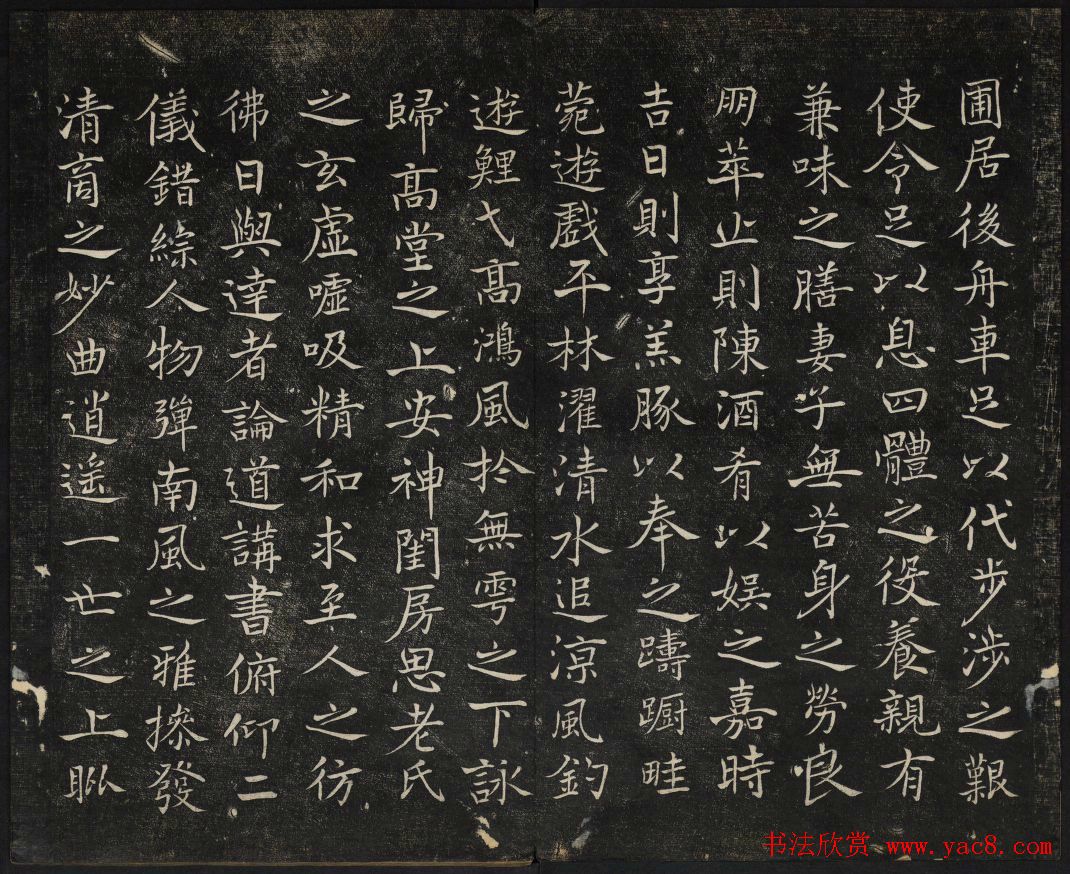 圃居後舟車足以代步涉之艱
使令足以息四體之役養親有
兼味之膳妻子無苦身之勞良
朋萃止則陳酒肴以娛之嘉時
吉日則享羔豚以奉之躊躕畦
菀遊戲平林濯清水追涼風釣
遊鯉弋高鴻風於無雩之下詠
歸高堂之上安神閨房思老氏
之玄虛噓吸精和求至人之彷
彿日與達者論道講書俯仰二
儀錯綜人物彈南風之雅操發
清商之妙曲逍遙一世之上
书法欣赏 www.yac8.com